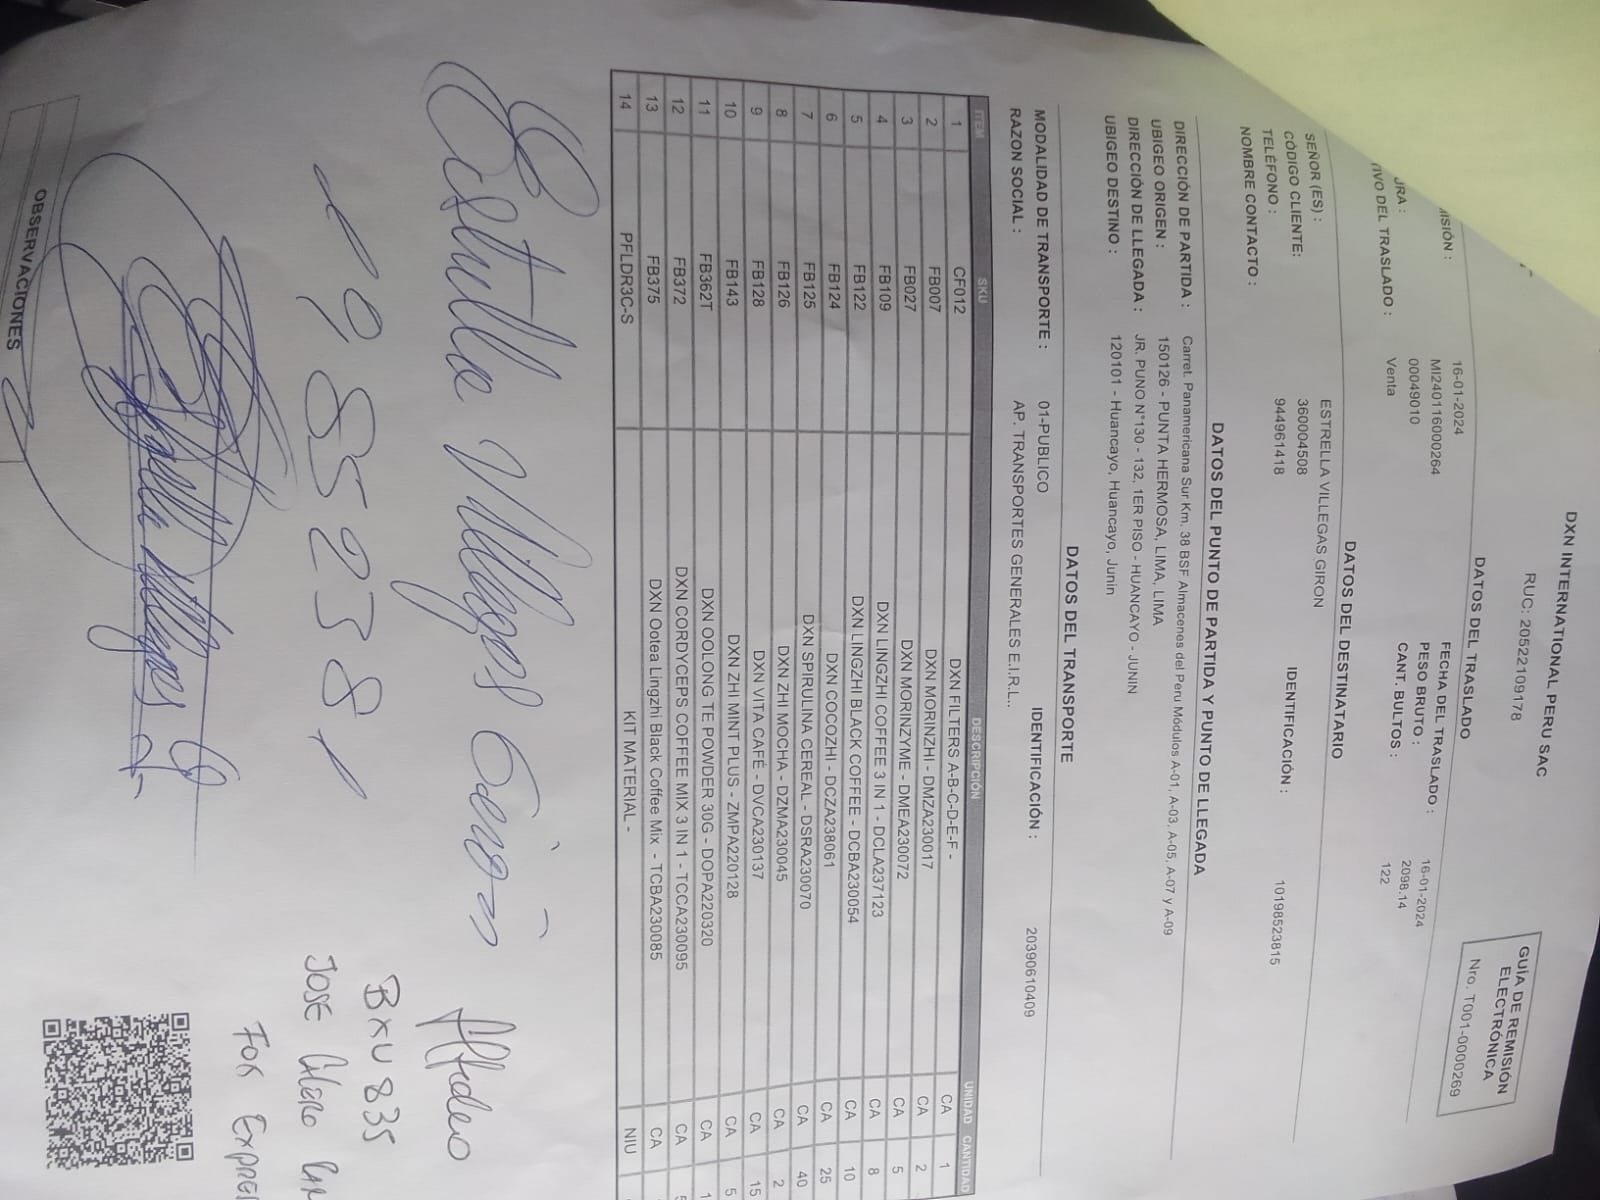 DXN INTERNATIONAL PERU SAC
RUC: 20522109178
GUÍA DE REMISIÓN
ELECTRÓNICA
Nro. T001-0000269
DATOS DEL TRASLADO
ISIÓN : 16-01-2024 FECHA DEL TRASLADO : 16-01-2024
MI240116000264 PESO BRUTO : 2098.14
URA : 00049010 CANT. BULTOS : 122
TIVO DEL TRASLADO : Venta
DATOS DEL DESTINATARIO
SEÑOR (ES) : ESTRELLA VILLEGAS GIRON
CÓDIGO CLIENTE: 360004508 IDENTIFICACIÓN : 10198523815
TELÉFONO : 944961418
NOMBRE CONTACTO :
DATOS DEL PUNTO DE PARTIDA Y PUNTO DE LLEGADA
DIRECCIÓN DE PARTIDA : Carret. Panamericana Sur Km. 38 BSF Almacenes del Perú Módulos A-01, A-03, A-05, A-07 y A-09
UBIGEO ORIGEN : 150126 - PUNTA HERMOSA, LIMA, LIMA
DIRECCIÓN DE LLEGADA : JR. PUNO N°130 - 132, 1ER PISO - HUANCAYO - JUNIN
UBIGEO DESTINO : 120101 - Huancayo, Huancayo, Junin
DATOS DEL TRANSPORTE
MODALIDAD DE TRANSPORTE : 01-PUBLICO
RAZON SOCIAL : AP. TRANSPORTES GENERALES E.I.R.L.. IDENTIFICACIÓN : 20390610409
ITEM SKU DESCRIPCIÓN UNIDAD CANTIDAD
1 CF012 DXN FILTERS A-B-C-D-E-F - CA 1
2 FB007 DXN MORINZHI - DMZA230017 CA 2
3 FB027 DXN MORINZYME - DMEA230072 CA 5
4 FB109 DXN LINGZHI COFFEE 3 IN 1 - DCLA237123 CA 8
5 FB122 DXN LINGZHI BLACK COFFEE - DCBA230054 CA 10
6 FB124 DXN COCOZHI - DCZA238061 CA 25
7 FB125 DXN SPIRULINA CEREAL - DSRA230070 CA 40
8 FB126 DXN ZHI MOCHA - DZMA230045 CA 2
9 FB128 DXN VITA CAFÉ - DVCA230137 CA 15
10 FB143 DXN ZHI MINT PLUS - ZMPA220128 CA 5
11 FB362T DXN OOLONG TE POWDER 30G - DOPA220320 CA 1
12 FB372 DXN CORDYCEPS COFFEE MIX 3 IN 1 - TCCA230095 CA
13 FB375 DXN Ootea Lingzhi Black Coffee Mix - TCBA230085 CA
14 PFLDR3C-S KIT MATERIAL - NIU
Villegas Girón
19852381
BXU 835
JOSE
FOX
OBSERVACIONES